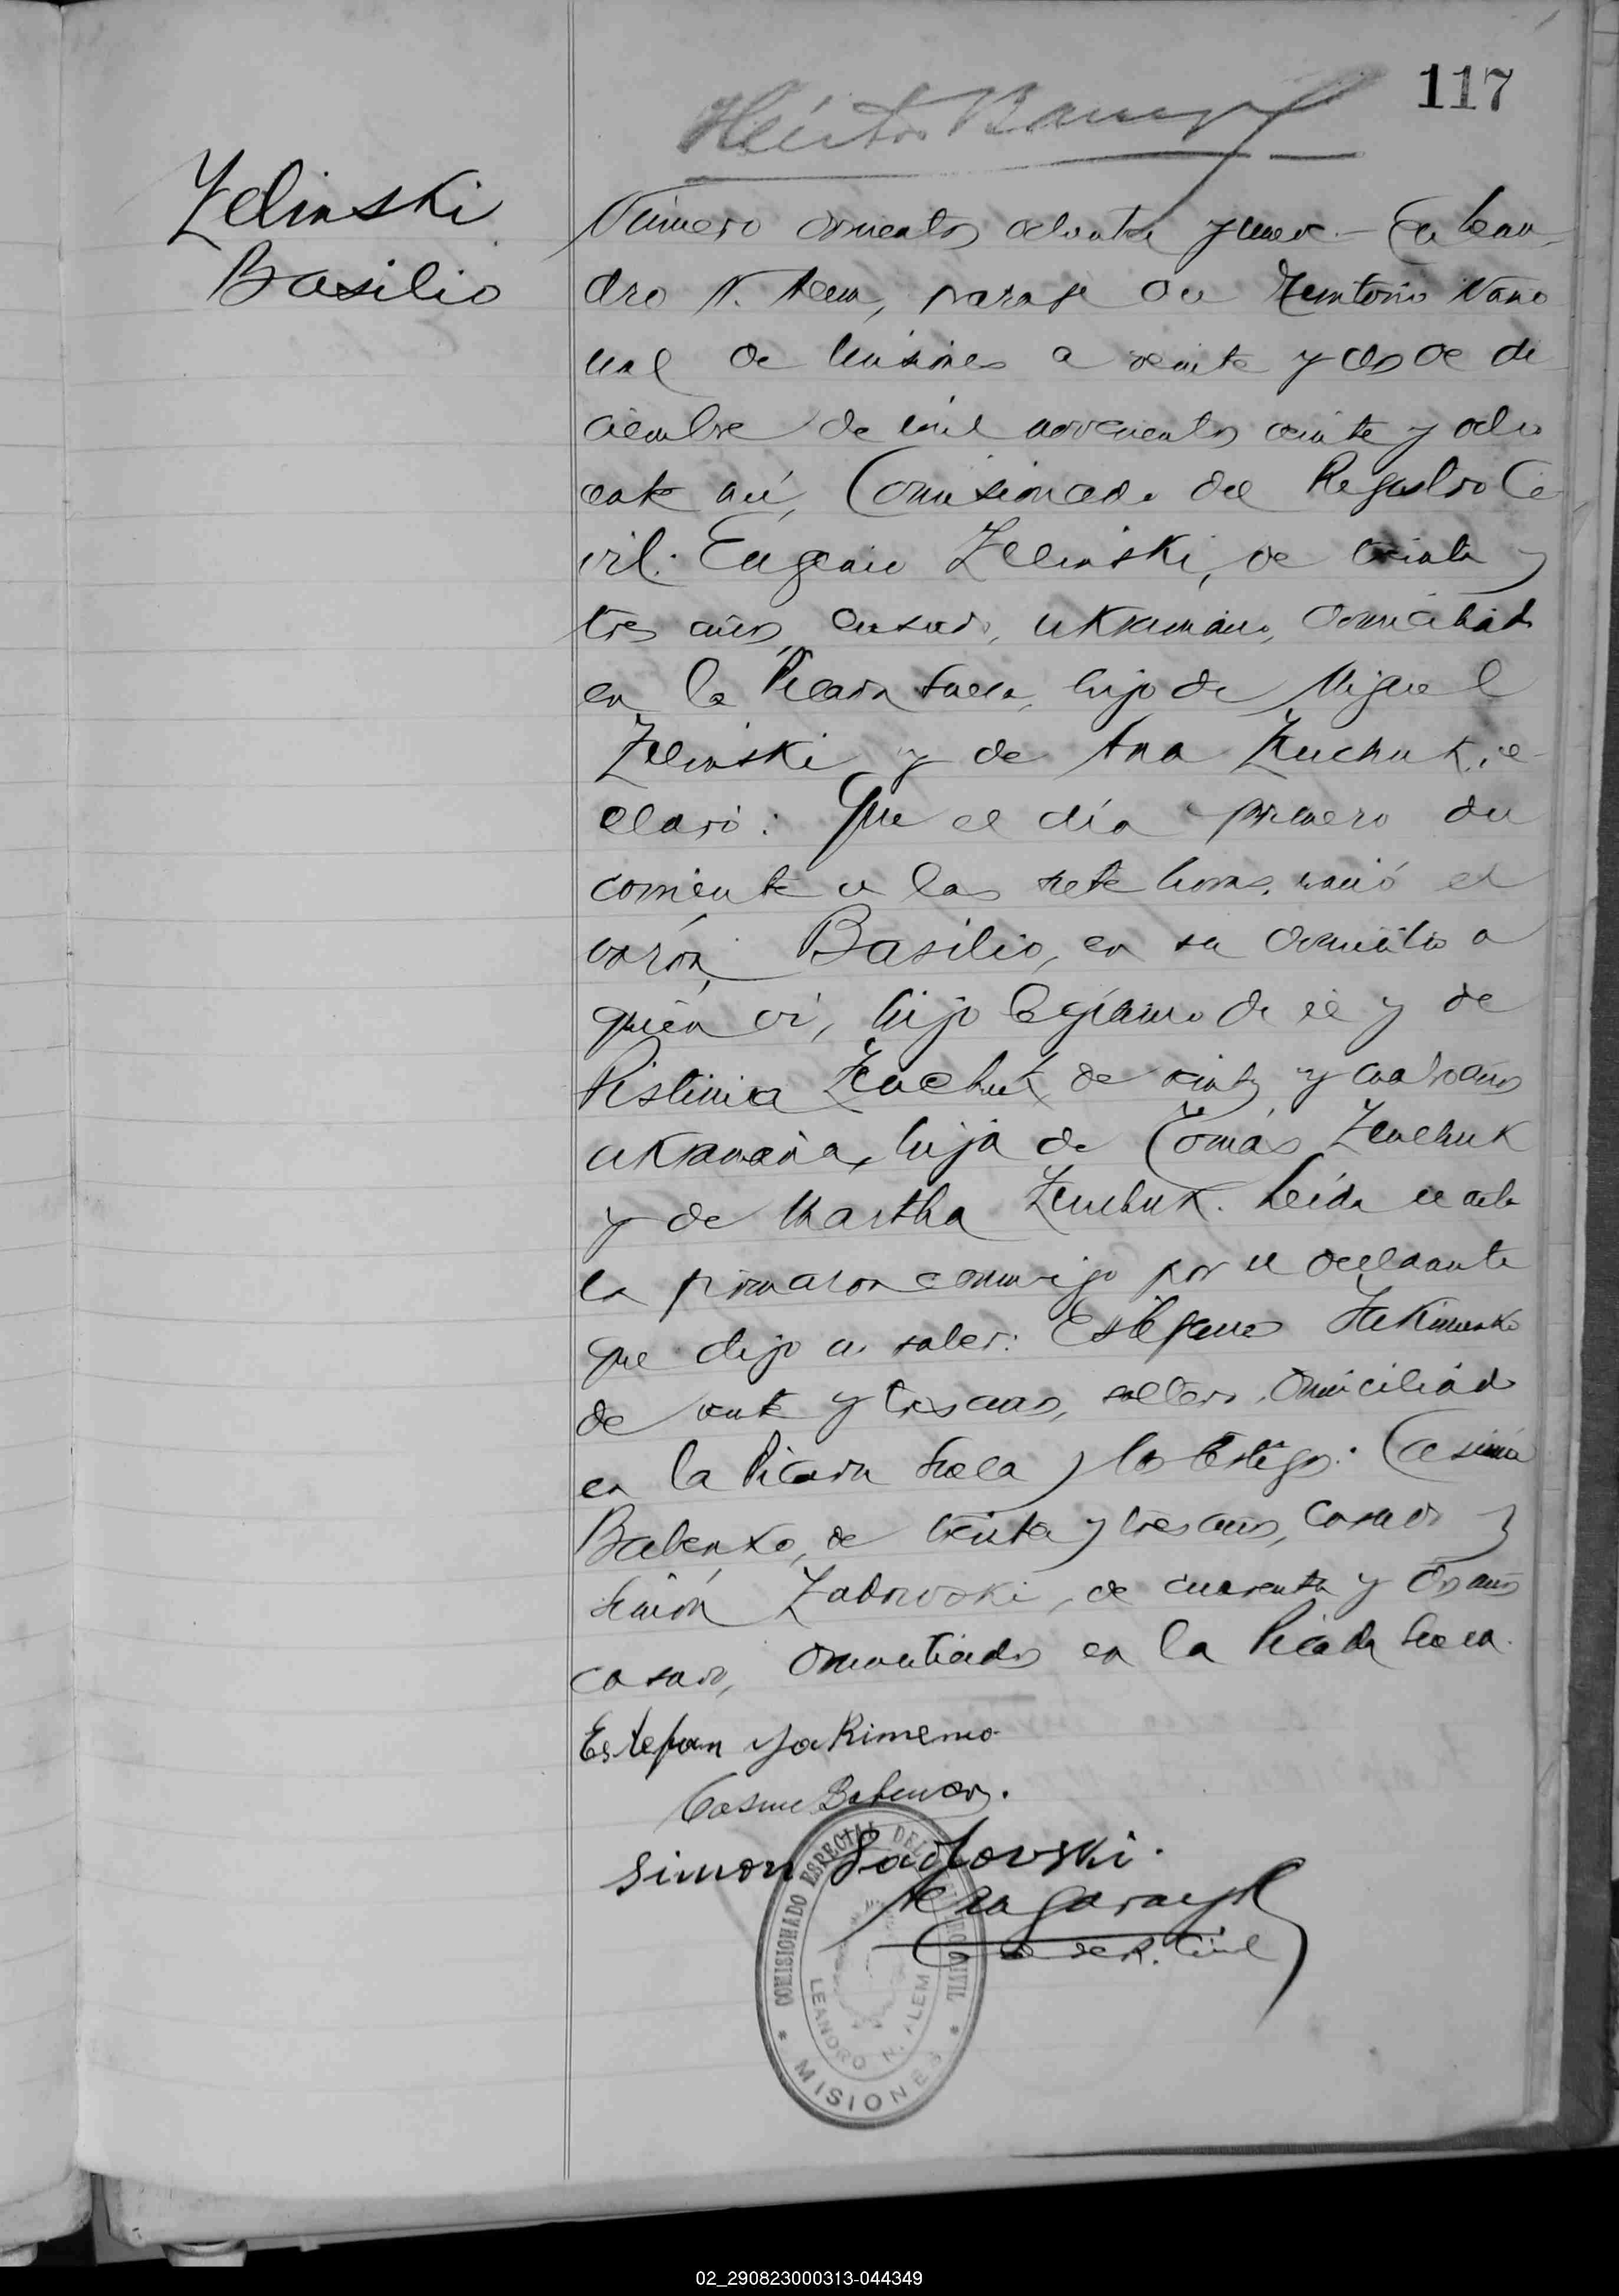 117
Zelinski
Basilio
Número doscientos ochenta y nueve.- En Lean
dro N. Alem, paraje del Territorio Nacio
nal de Misiones a veinte y dos de di
ciembre de mil novecientos veinte y ocho
ante mí, Comisionado del Registro Ci
vil: Eugenio Zelinski, de treinta y
tres años, casado, ukraniano, domiciliado
en la Picada Sueca, hijo de Miguel
Zelinski y de Ana Zeuchuk, de
claró: Que el día primero del
corriente a las siete horas, nació el
varón Basilio, en su domicilio a
quién ví, hijo legítimo de él y de
Pistinia Zeuchuk de veinte y cuatro años
ukraniana, hija de Tomás Zeuchuk
y de Martha Zeuchuk. Leída el acta
la firmaron conmigo por el declarante
que dijo no saber: Estefano
de veinte y tres años, soltero, domiciliado
en la Picada Sueca y los testigos:
Babenko, de treinta y tres años, casado y
Simón Zadowski, de cuarenta y dos años
casado, domiciliados en la Picada Sueca.
Estefan Jakimemo
Cosme
Simon Sadovski.
COMISIONADO ESPECIAL DEL REGISTRO CIVIL
LEANDRO N. ALEM
* MISIONES *
de R. Civil
02_290823000313-044349